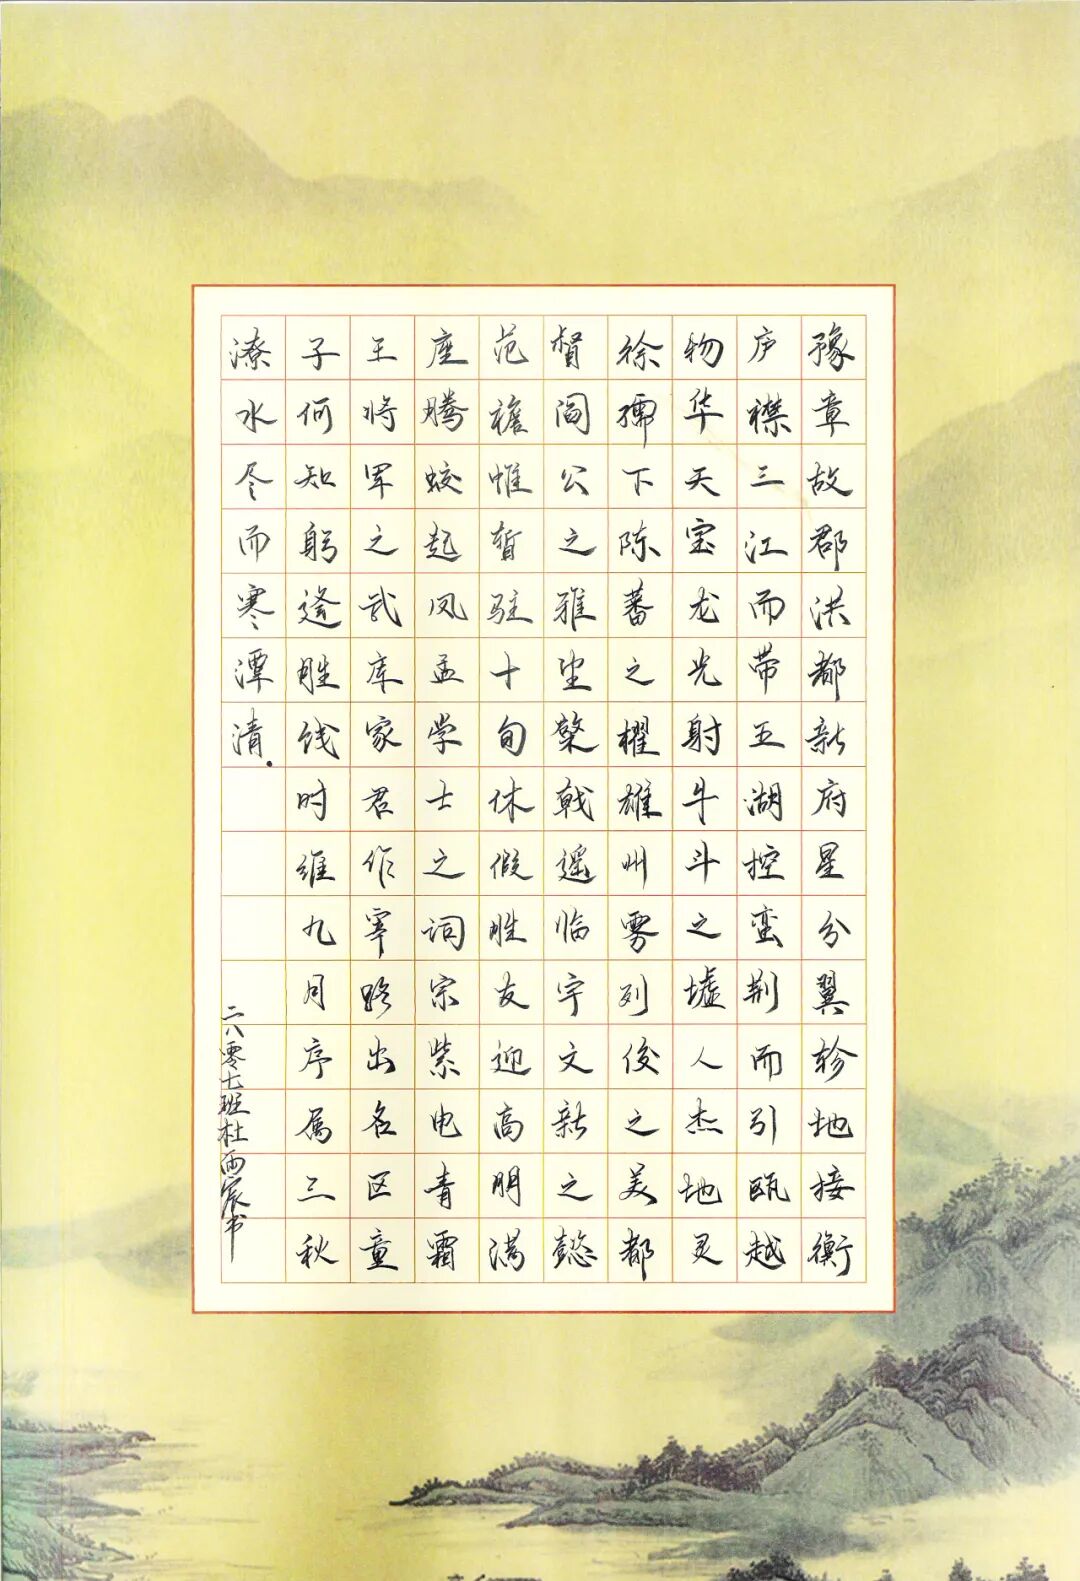 豫章故郡洪都新府星分翼轸地接衡
庐襟三江而带五湖控蛮荆而引瓯越
物华天宝龙光射牛斗之墟人杰地灵
徐孺下陈蕃之櫂雄州雾列俊之美都
督阎公之雅望棨戟遥临宇文新之懿
范襜帷暂驻十旬休假胜友迎高朋满
座腾蛟起凤孟学士之词宗紫电青霜
王将军之武库家君作宰路出名区童
子何知躬逢胜饯时维九月序属三秋
潦水尽而寒潭清.
二八零七班杜雨宸书